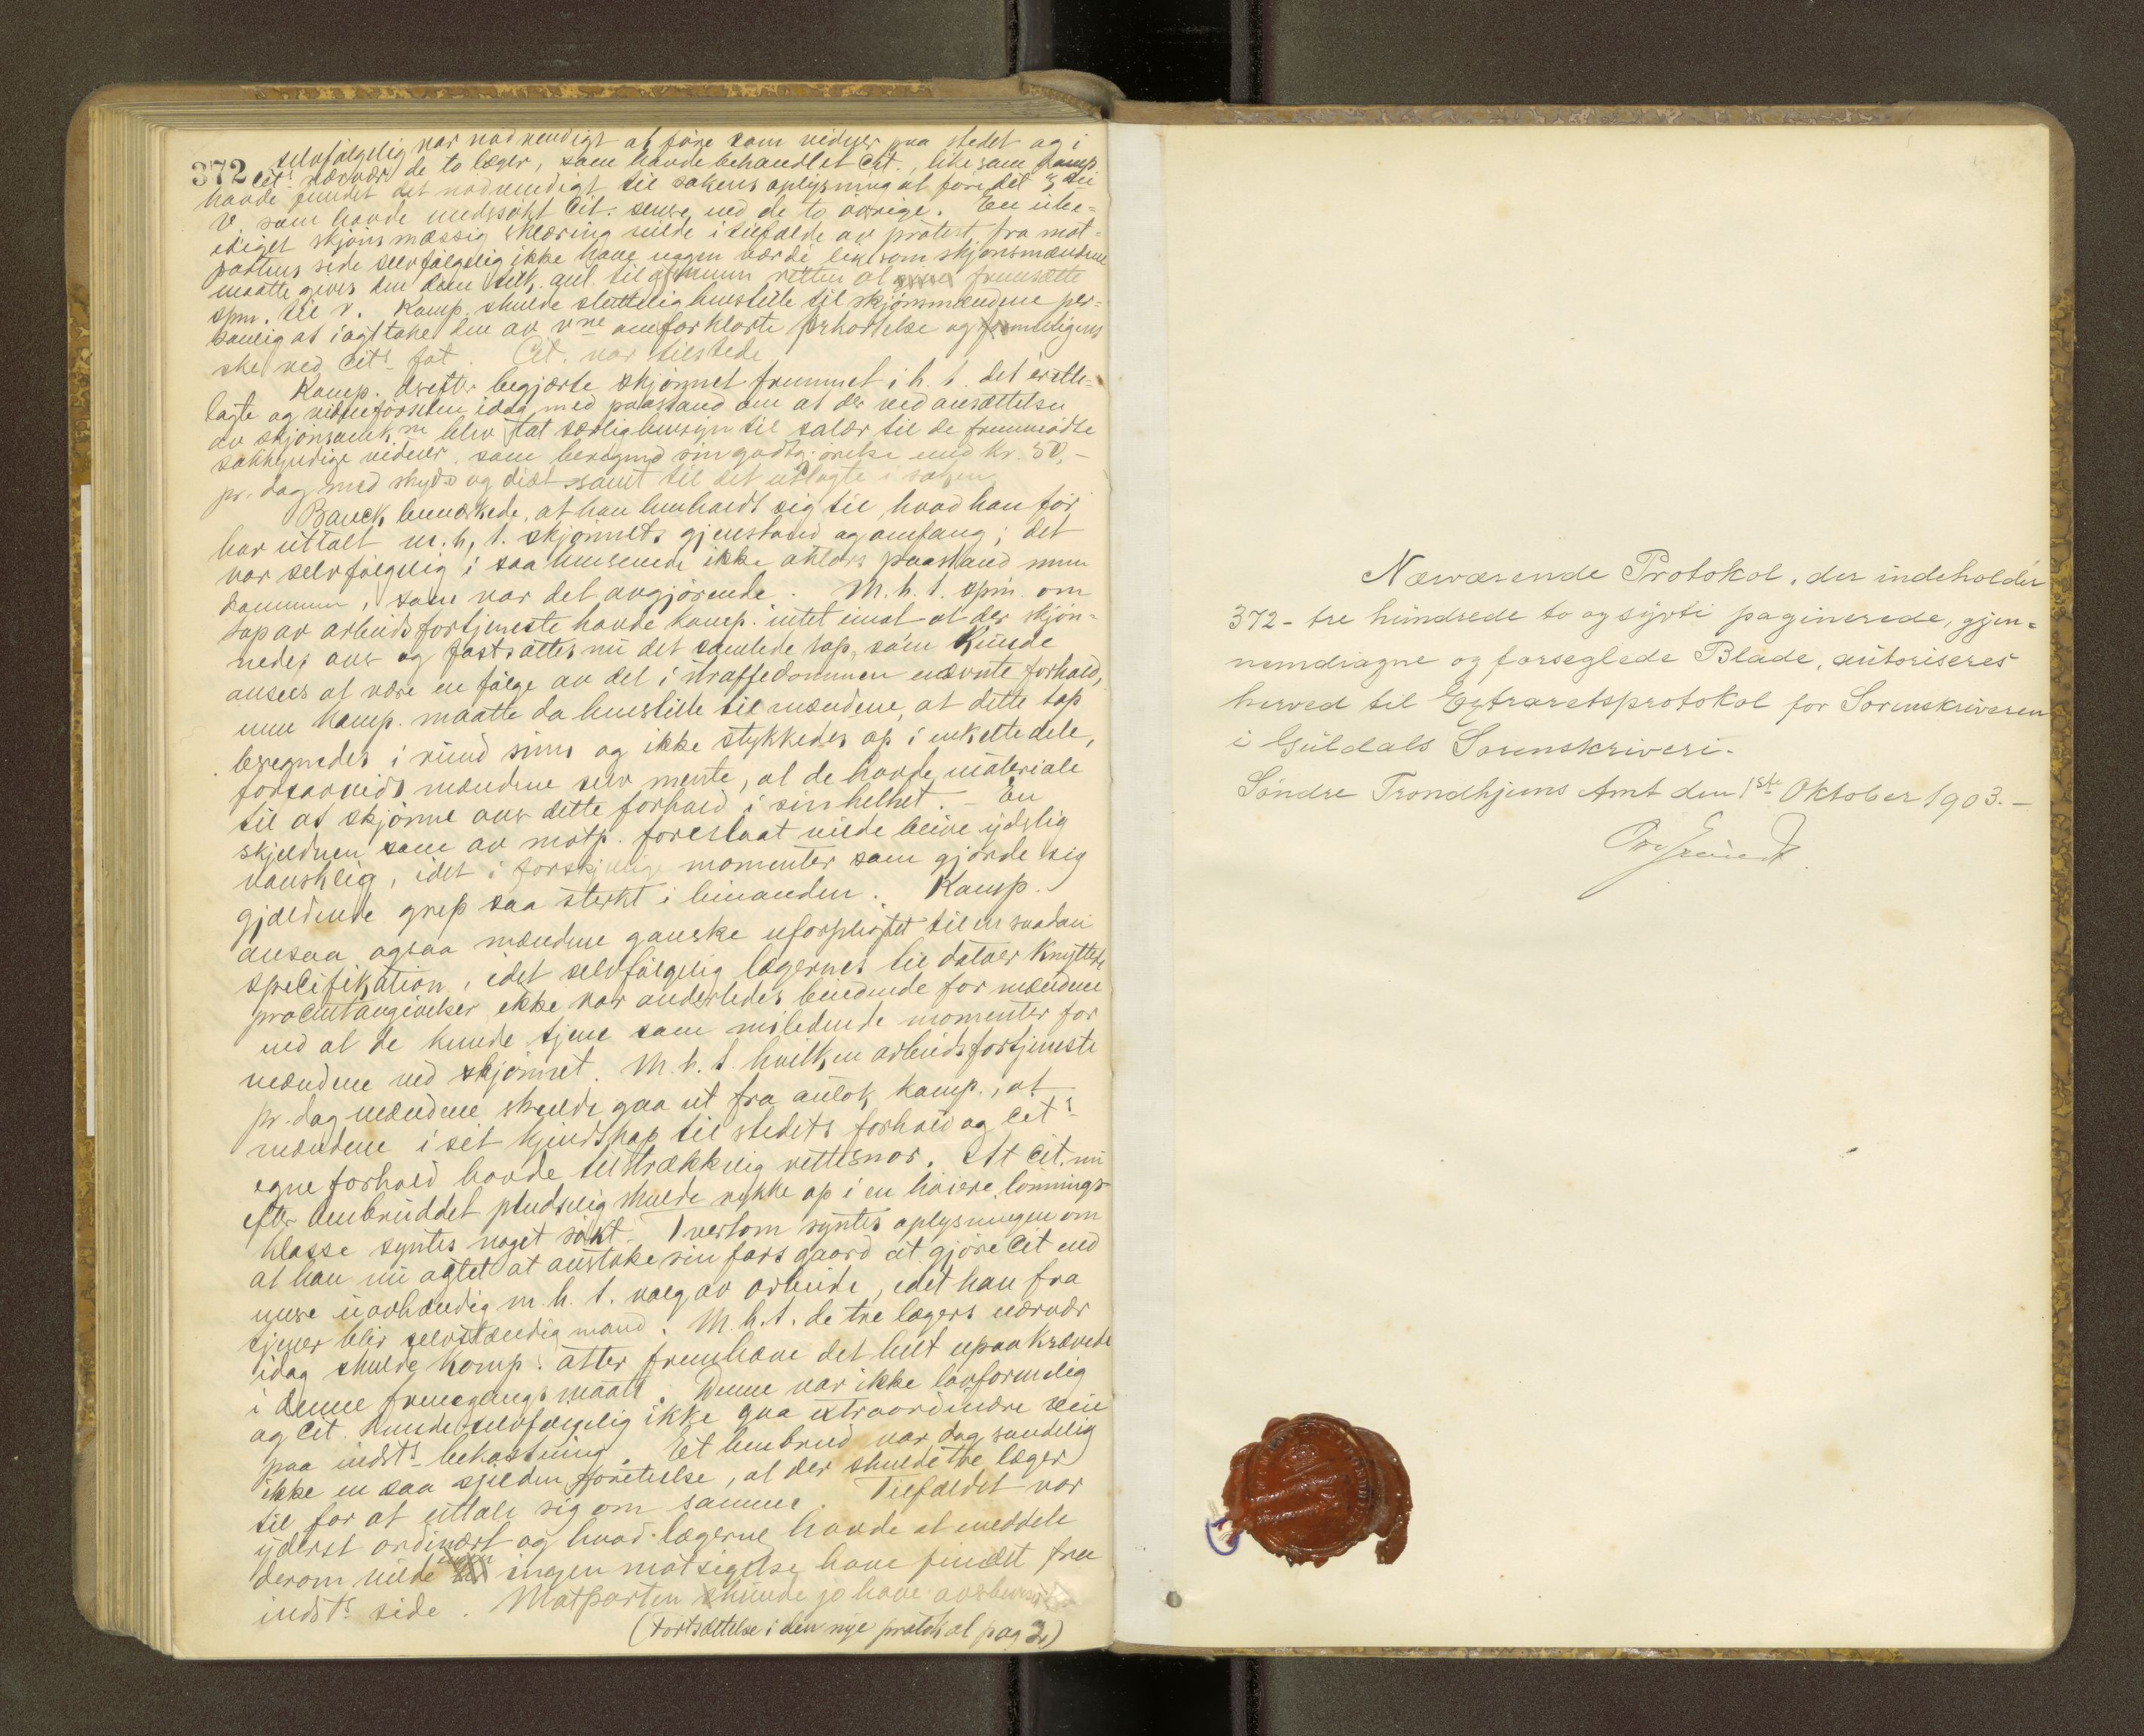 372
selvfølgelig var nødvendigt at føre som vidner paa stedet og i
Cits nærvær de to læger, som havde behandlet Cit., like som Kamp.
havde fundet det nødvendigt til sakens oplysning at føre det 3die
V. som havde undersøkt Cit. senere end de to øvrige. En ube=
ediget skjønsmæssig erklæring vilde i tilfælde av protest fra mot=
partens side selvfølgelig ikke have nogen værdi likesom skjønsmændene
maatte gives den dem anl. til at kunne retten at fremsætte
spm. til V. Kamp. skulde sluttelig henstille til skjønsmændene per=
sonlig at iagttake den av vne omforklarte forkortelse og formentligens
ske ved Cits fot. Cit. var tilstede.
Kamp. derefter begjærte skjønnet fremmet i h. t. det irette=
lagte og vidneførselen idag med paastand om at der ved ansættelsen
av skjønsomkne blev tat særlig hensyn til salær til de fremmødte
sakkyndige vidner, som beregned sin godtgjørelse med kr. 50,-
pr. dag med skyds og diæt samt til det utlagte i saken.
Bauck bemerkede, at han henholdt sig til hvad han før
har uttalt m. h. t. skjønnets gjenstand og omfang; det
var selvfølgelig i saa henseende ikke aktors paastand men
dommen, som var det avgjørende. M. h. t. spm. om
tap av arbeidsfortjeneste havde kamp. intet imot at der skjøn=
nedes over og fastsattes nu det samlede tap, som kunde
ansees at være en følge av det i straffedommen nævnte forhold,
men Kamp. maatte da henstille til mændene, at dette tap
beregnedes i rund sum og ikke stykkedes op i enkelte dele,
forsaavidt mændene selv mente, at de havde materiale
til at skjønne over dette forhold i sin helhet. - En
skjelnen som av motp. foreslaat vilde blive ydrslig
vanskelig, idet i forskjellige momenter som gjorde sig
gjældende grep saa sterkt i hinanden. Kamp.
ansaa ogsaa mændene ganske uforpligtet til en saadan
specifikation, idet selvfølgelig lægernes til datoer knyttede
procentangivelser ikke var anderledes bindende for mændene
end at de kunde tjene som veiledende momenter for
mændene ved skjønnet. M. h. t. hvilken arbeidsfortjeneste
pr. dag mændene skulde gaa ut fra antok kamp., at
mændene i sit kjendskap til stedets forhold og Cits
egne forhold havde tilstrækkelig rettesnor. At Cit. nu
efter benbruddet pludselig skulde rykke op i en høiere lønnings-
klasse syntes noget søkt. Tvertom syntes oplysningen om
at han nu agtet at overtake sin fars gaard at gjøre Cit end
mere uavhændig m. h. t. valg av arbeide, idet han fra
tjener blir selvstændig mand. M. h. t. de tre lægers nærvær
idag skulde Kamp. atter fremhæve det helt upaakrævede
i denne fremgangsmaate. Denne var ikke lovformelig
og Cit. kunde selvfølgelig ikke gaa extraordinære veie
paa indsts bekostning. Et benbrud var dog sandelig
ikke en saa sjelden foreteelse, at der skulde tre læger
til for at uttale sig om samme. Tilfældet var
yderst ordinært og hvad lægerne havde at meddele
derom vilde ingen motsigelse have fundet fra
indsts side. Motparten kunde jo have
(Fortsættelse i den nye protokol pag 2)
Nærværende Protokol, der indeholder
372 - tre hundrede to og sytti paginerede, gjen=
nemdragne og forseglede Blade, autoriseres
herved til Extraretsprotokol for Sorenskriveren
i Guldals Sorenskriveri.
Søndre Trondhjems Amt den 1ste Oktober 1903.-